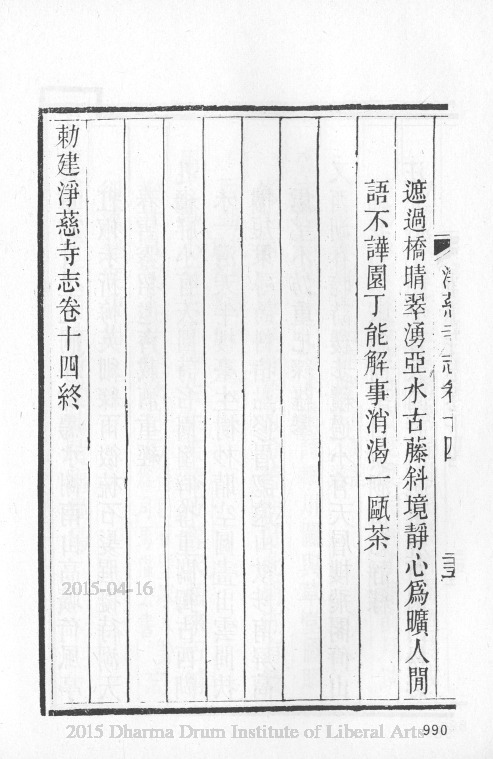 淨慈寺志卷十四
遮過橋晴翠湧亞水古藤斜境靜心爲曠人閒
語不譁園丁能解事消渴一甌茶
勅建淨慈寺志卷十四終
2015-04-16
2015 Dharma Drum Institute of Liberal Arts
990